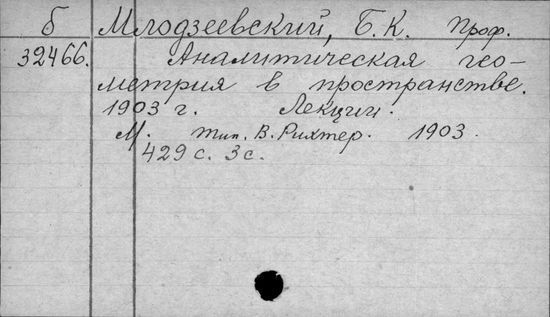 б Млодзеевский, Б. К. Проф.
32466. Аналитическая гео-
метрия в пространстве.
1903 г. Лекции.
М. тип. В. Рихтер. 1903.
429 с. 3 с.